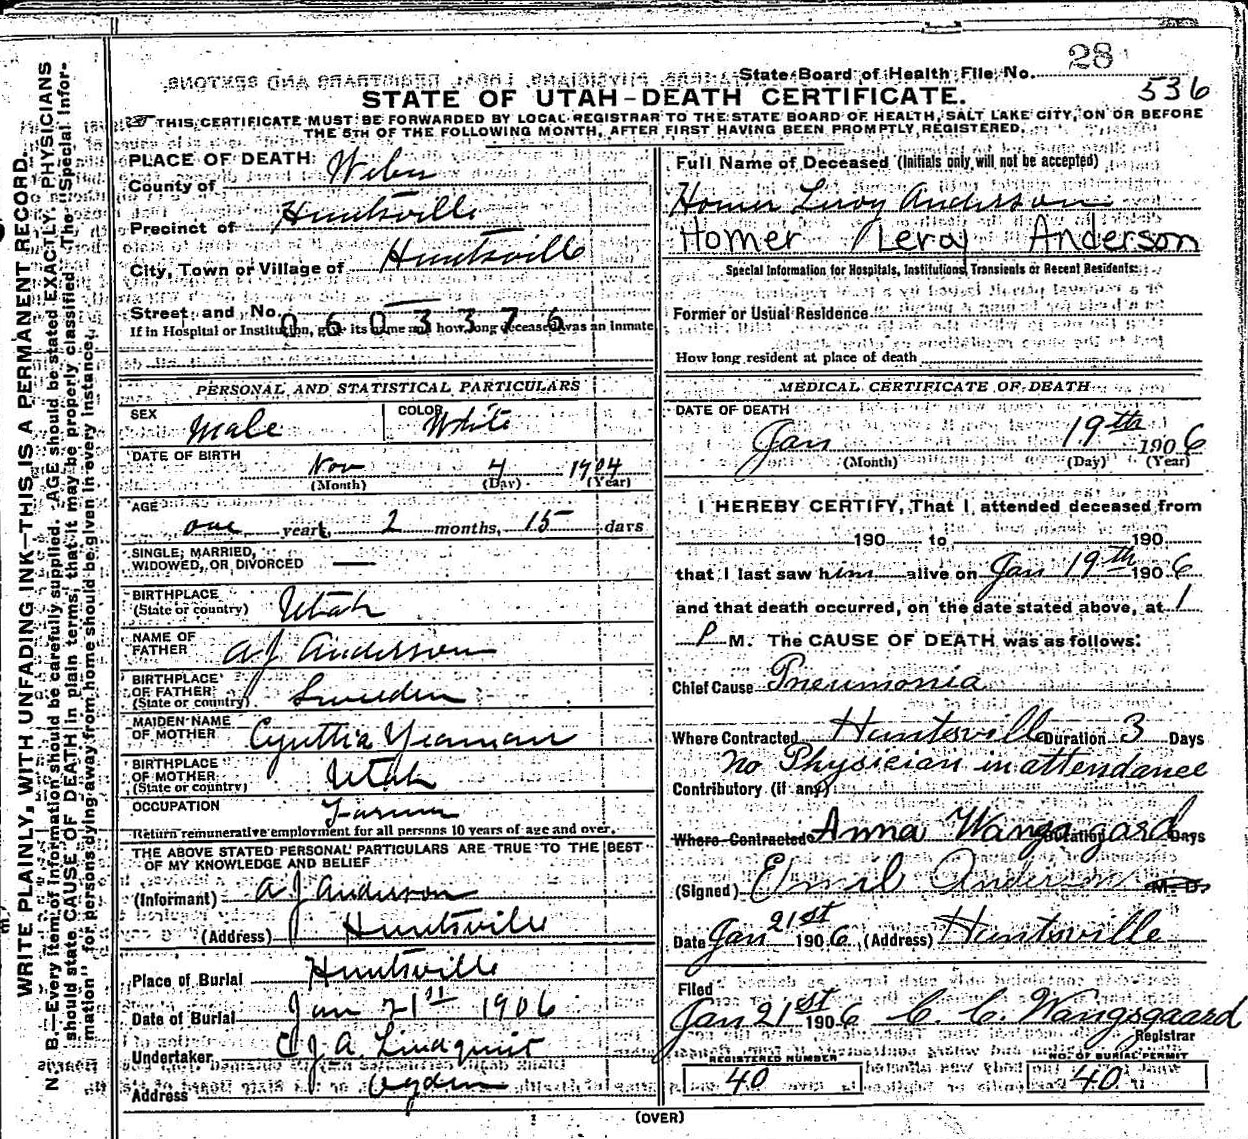 28
State Board of Health File No.
536
STATE OF UTAH–DEATH CERTIFICATE.
THIS CERTIFICATE MUST BE FORWARDED BY LOCAL REGISTRAR TO THE STATE BOARD OF HEALTH, SALT LAKE CITY, ON OR BEFORE
THE 5TH OF THE FOLLOWING MONTH, AFTER FIRST HAVING BEEN PROMPTLY REGISTERED.
WRITE PLAINLY, WITH UNFADING INK—THIS IS A PERMANENT RECORD.
N. B.—Every item of information should be carefully supplied. AGE should be stated EXACTLY. PHYSICIANS
should state CAUSE OF DEATH in plain terms, that it may be properly classified. The "Special Infor-
mation" for persons dying away from home should be given in every instance.
PLACE OF DEATH:
County of Weber
Precinct of Huntsville
City, Town or Village of Huntsville
Street and No.
0603376
If in Hospital or Institution, give its name and how long deceased was an inmate
PERSONAL AND STATISTICAL PARTICULARS
SEX Male COLOR White
DATE OF BIRTH
Nov 4 1904
(Month) (Day) (Year)
AGE
one years, 2 months, 15 days
SINGLE, MARRIED,
WIDOWED, OR DIVORCED —
BIRTHPLACE
(State or country) Utah
NAME OF
FATHER A J Anderson
BIRTHPLACE
OF FATHER
(State or country) Sweeden
MAIDEN NAME
OF MOTHER Cynthia Yeaman
BIRTHPLACE
OF MOTHER
(State or country) Utah
OCCUPATION Farmer
Return remunerative employment for all persons 10 years of age and over.
THE ABOVE STATED PERSONAL PARTICULARS ARE TRUE TO THE BEST
OF MY KNOWLEDGE AND BELIEF
(Informant) A J Anderson
(Address) Huntsville
Place of Burial Huntsville
Date of Burial Jan 21st 1906
Undertaker J. A. Lindquist
Address Ogden
Full Name of Deceased (Initials only will not be accepted)
Homer Leroy Anderson
Homer Leroy Anderson
Special Information for Hospitals, Institutions, Transients or Recent Residents:
Former or Usual Residence
How long resident at place of death
MEDICAL CERTIFICATE OF DEATH
DATE OF DEATH
Jan 19th 1906
(Month) (Day) (Year)
I HEREBY CERTIFY, That I attended deceased from
190 to 190
that I last saw him alive on Jan 19th 1906
and that death occurred, on the date stated above, at 1
P M. The CAUSE OF DEATH was as follows:
Chief Cause Pneumonia
Where Contracted Huntsville Duration 3 Days
No Physician in attendance
Contributory (if any)
Where Contracted Anna Wangsgard Duration Days
(Signed) Emil Anderson M. D.
Date Jan 21st 1906 (Address) Huntsville
Filed
Jan 21st 1906 C. C. Wangsgaard
Registrar
REGISTERED NUMBER
40
NO. OF BURIAL PERMIT
40
(OVER)